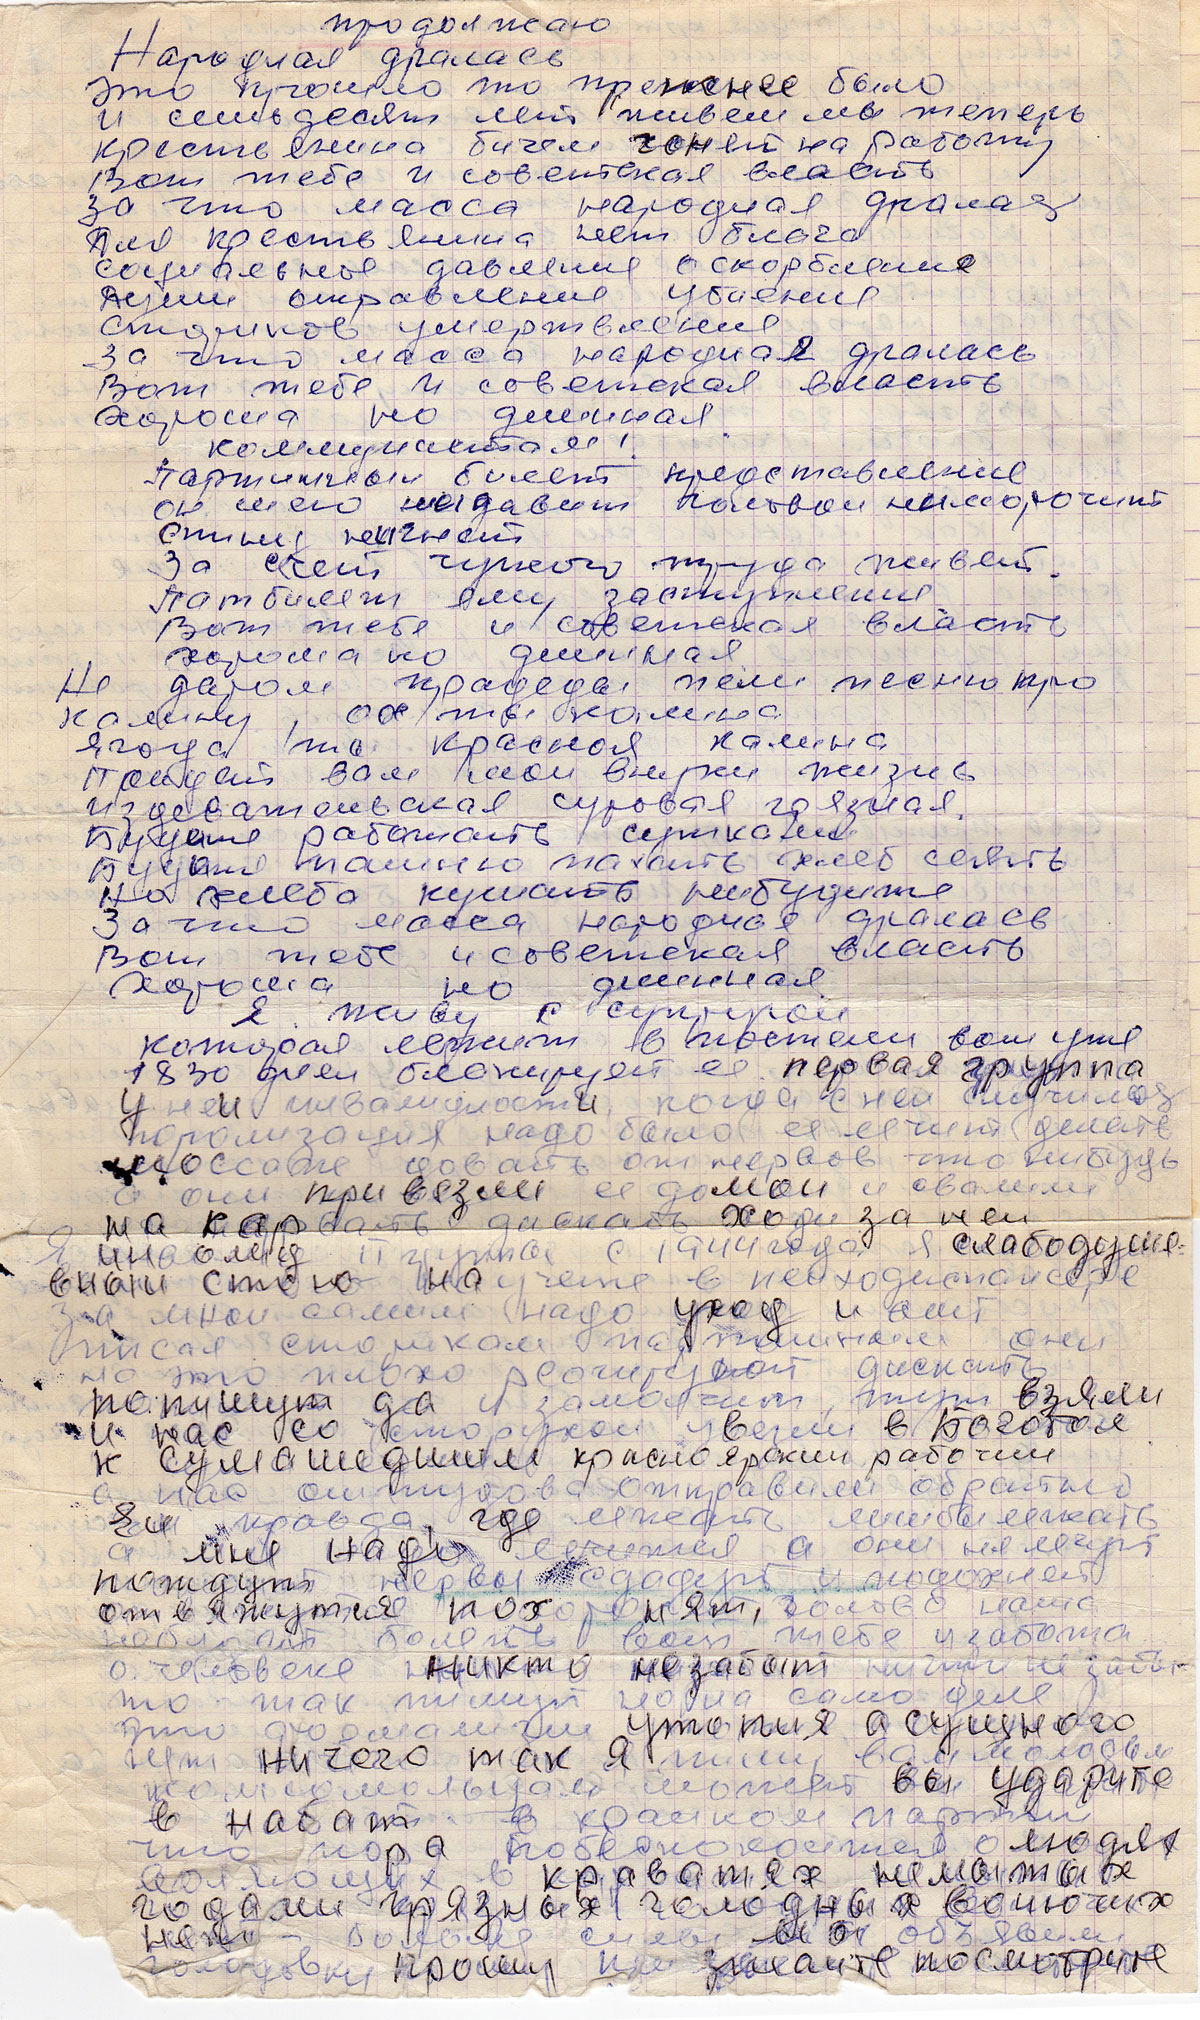 продолжаю
Народная дралась
Это прошло то прежнее было
и семьдесят лет живем мы теперь
крестьянина бичем гонят на работу
Вот тебе и советская власть
За что масса народная дралась
Для крестьянина нет блага
социальное давление оскорбление
Души отравление убиение
Стариков умертвление
За что масса народная дралась
Вот тебе и советская власть
хороша но длинная
коммунистам!
Партийный билет представление
он его недавит головой неморочит
Спину негнет
За счет чужого труда живет.
Патбилет ему заступление
Вот тебе и советская власть
хороша но длинная
Не даром прадеды пели песню про
калину, ох ты калина
ягода ты красная калина
Прийдет вам мои внуки жизнь
издевательская суровая грязная.
Будете работать сутками
Будете пашню пахать хлеб сеять
Но хлеба кушать небудите
За что масса народная дралась
Вот тебе и советская власть
Хороша но длинная
Я живу с супругой
которая лежит в постели вот уже
1830 дней блокирует ее первая группа
у ней инвалидности, когда с ней случилась
порализация надо было ее лечит делать
массаж довать от нервов что нибудь
а они привезли ее домой и свалили
на кровать дискать ходи за ней
Я инвалид Пгрупы с 1944 года я слабодуше-
вный стою на учете в психодиспансере
За мной самим надо уход и
писал стольком партийным они
на это плохо реогируют дискать
попишут да и замолчит, тут взяли
и нас со старухой увезли в Боготол
к сумашедшим красноярский рабочий
а нас оттудова отправили обратно
правда, где лежать лишбылежать
а мне надо лечится а они нелечут
пождут нервы сдадут и подохнет
отвяжутся нох нят, голова наша
небудет болеть вот тебе и забота
о человеке никто незабыт ничто незабы-
то так пишут но на само деле
это утопия а сущного
нет ничего так я пишу вам молодым
комсомольцам может вы ударите
в набат в крайком партии
что пора побеспокоится о людях
в кроватях немытых
годами грязных голодных вонючих
нет больше силы объявим
голодовку прошу приезжайте посмотрите